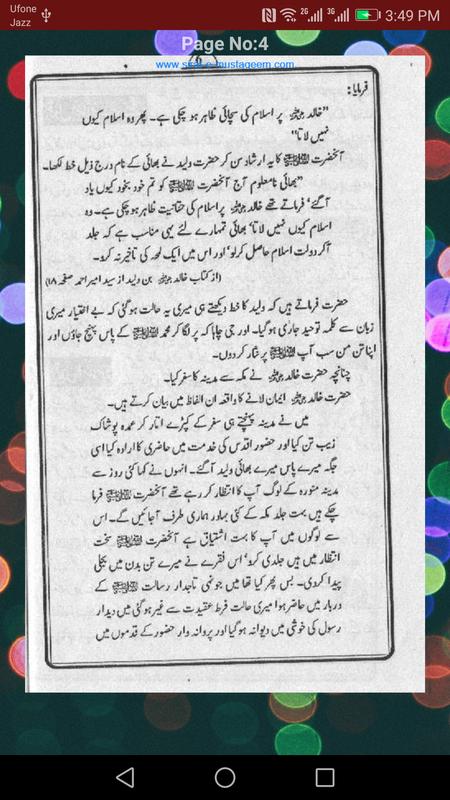 Ufone
Jazz
2G
3G
3:49 PM
Page No:4
www.sirat-e-mustaqeem.com
فرمایا:
"خالد رضی اللہ عنہ پر اسلام کی سچائی ظاہر ہو چکی ہے۔ پھر وہ اسلام کیوں
نہیں لاتا"
آنحضرت ﷺ کا یہ ارشاد سن کر حضرت ولید نے بھائی کے نام درج ذیل خط لکھا۔
"بھائی نامعلوم آج آنحضرت ﷺ کو تم خود بخود کیوں یاد
آ گئے' فرماتے تھے خالد رضی اللہ عنہ پر اسلام کی حقانیت ظاہر ہو چکی ہے۔ وہ
اسلام کیوں نہیں لاتا' بھائی تمہارے لئے یہی مناسب ہے کہ جلد
آ کر دولت اسلام حاصل کر لو' اور اس میں ایک لمحہ کی تاخیر نہ کرو۔
(از کتاب خالد رضی اللہ عنہ بن ولید از سید امیر احمد صفحہ ۱۸)
حضرت فرماتے ہیں کہ ولید کا خط دیکھتے ہی میری یہ حالت ہو گئی کہ بے اختیار میری
زبان سے کلمہ توحید جاری ہو گیا۔ اور جی چاہا کہ پر لگا کر محمد ﷺ کے پاس پہنچ جاؤں اور
اپنا تن من سب آپ ﷺ پر نثار کر دوں۔
چنانچہ حضرت خالد رضی اللہ عنہ نے مکہ سے مدینہ کا سفر کیا۔
حضرت خالد رضی اللہ عنہ ایمان لانے کا واقعہ ان الفاظ میں بیان کرتے ہیں۔
میں نے مدینہ پہنچتے ہی سفر کے کپڑے اتار کر عمدہ پوشاک
زیب تن کیا اور حضور اقدس کی خدمت میں حاضری کا ارادہ کیا اسی
جگہ میرے پاس میرے بھائی ولید آ گئے۔ انہوں نے کہا کئی روز سے
مدینہ منورہ کے لوگ آپ کا انتظار کر رہے تھے آنحضرت ﷺ فرما
چکے ہیں بہت جلد مکہ کے کئی بہادر ہماری طرف آ جائیں گے۔ اس
سے لوگوں میں آپ کا بہت اشتیاق ہے آنحضرت ﷺ سخت
انتظار میں ہیں جلدی کرو' اس فقرے نے میرے تن بدن میں بجلی
پیدا کر دی۔ بس پھر کیا تھا میں جونہی تاجدار رسالت ﷺ کے
دربار میں حاضر ہوا میری حالت فرط عقیدت سے غیر ہو گئی میں دیدار
رسول کی خوشی میں دیوانہ ہو گیا اور پروانہ وار حضور کے قدموں میں